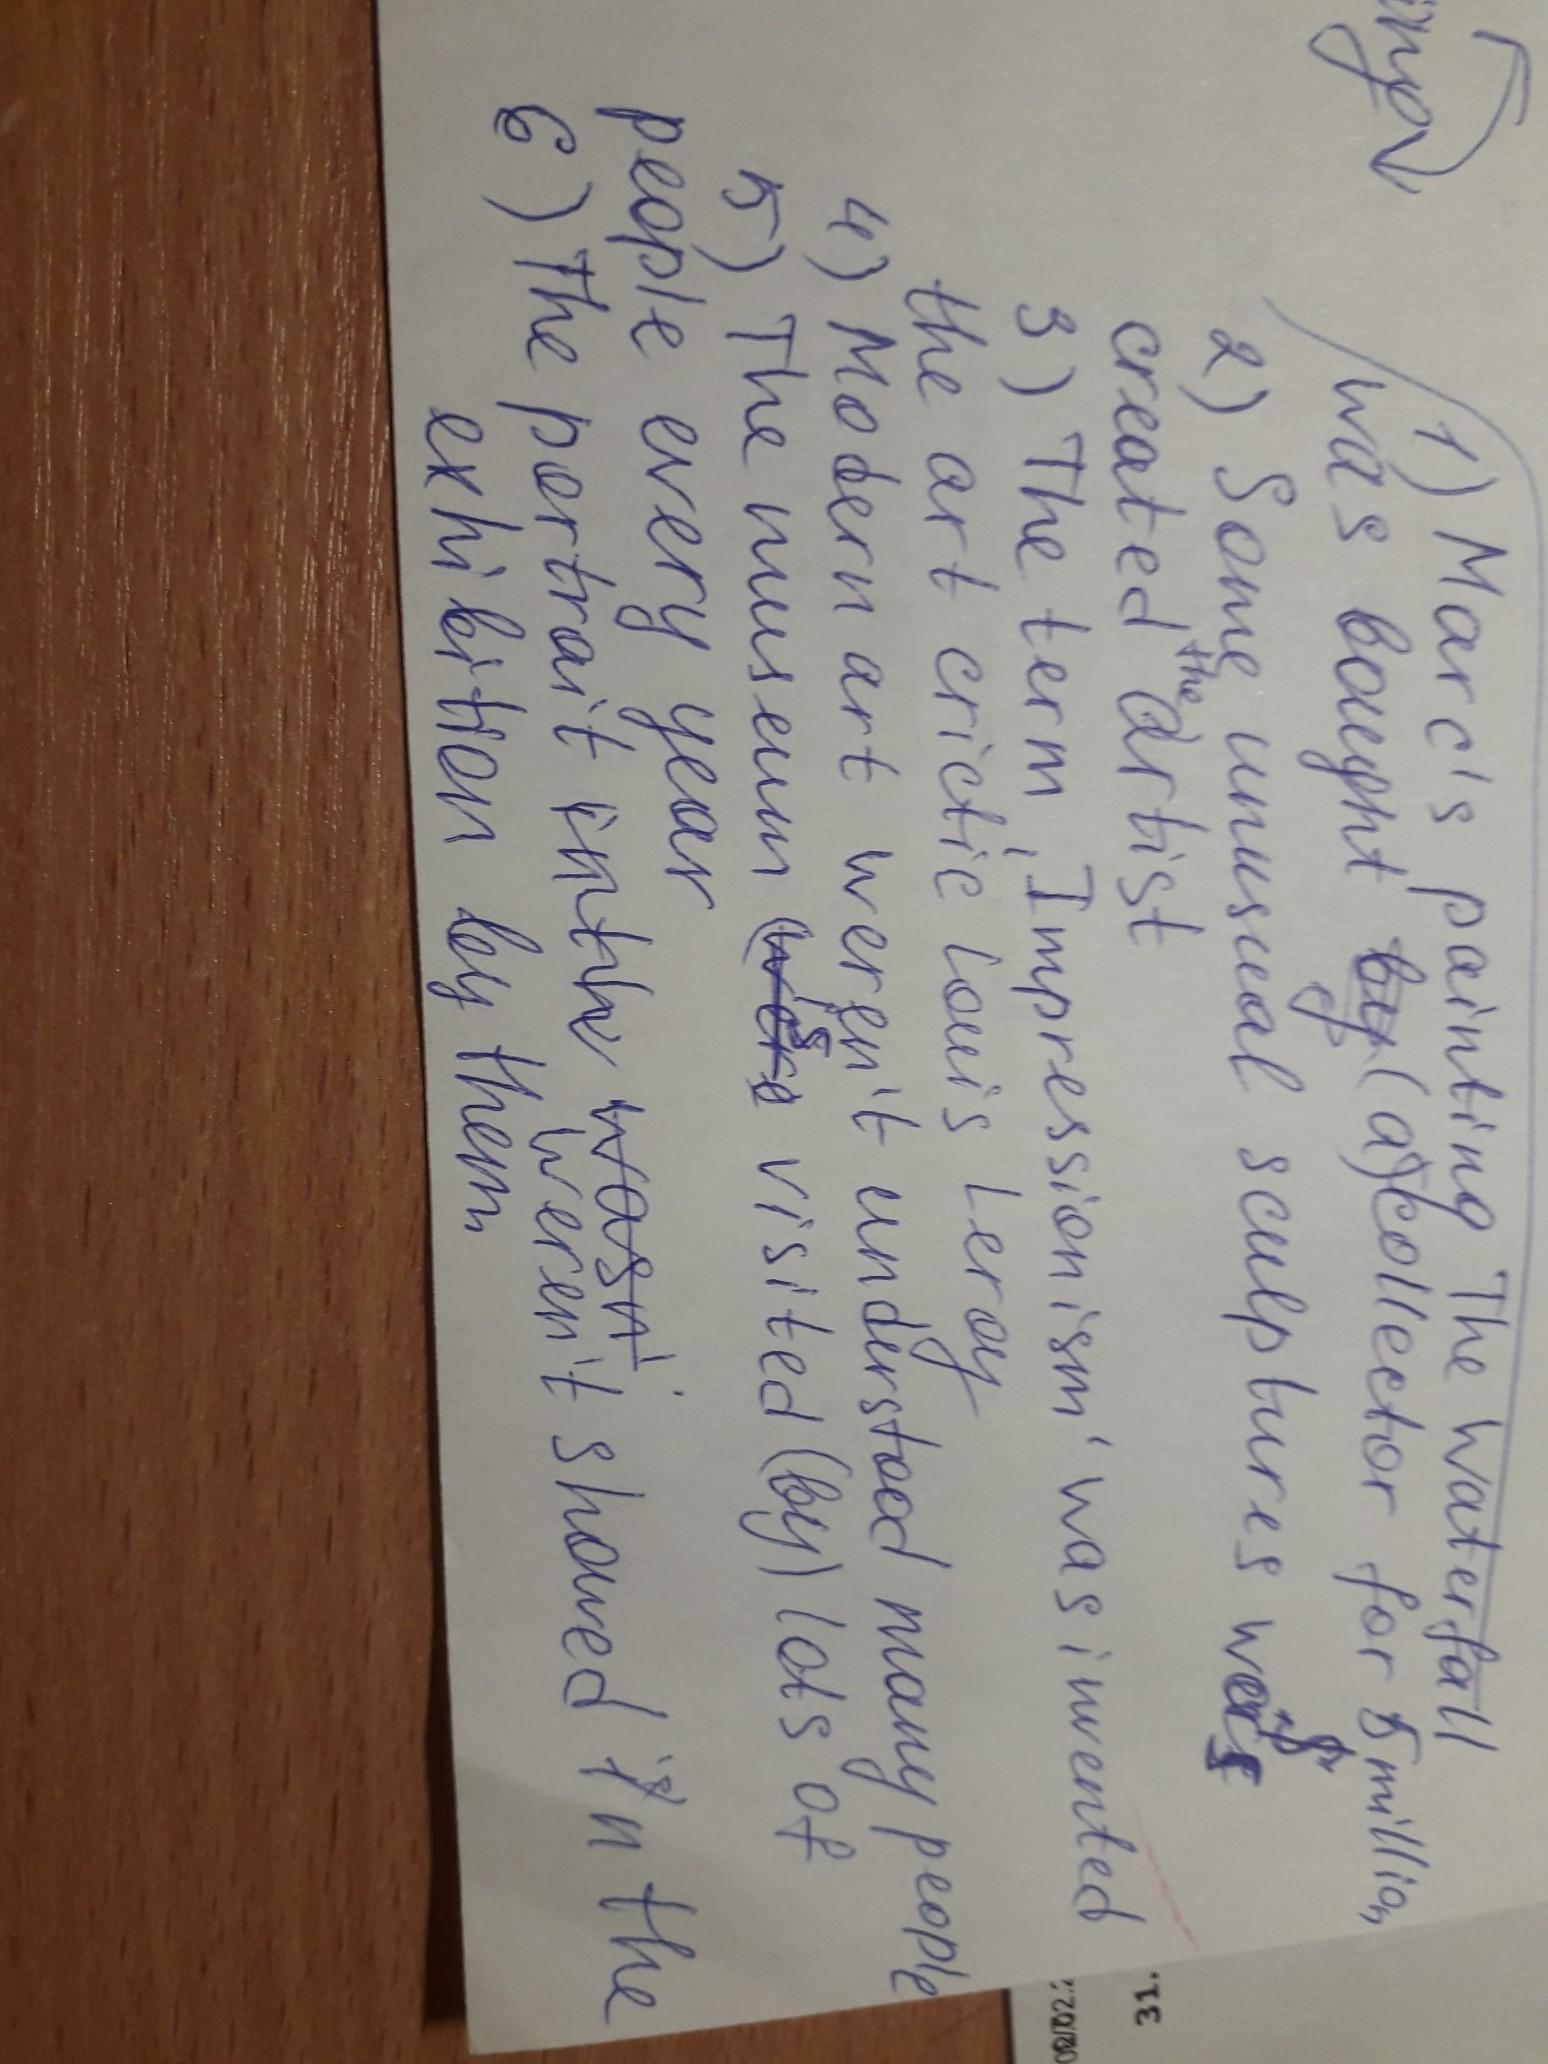 1) Marc's painting The Waterfall
was bought by (a) collector for 5 million
2) Some unusual sculptures were
created the artist
3) The term 'Impressionism' was invented
the art crictic Louis Leroy
4) Modern art weren't understood many people
5) The museum was visited (by) lots of
people every year
6) The portrait weren't showed in the
exhibition by them
31.